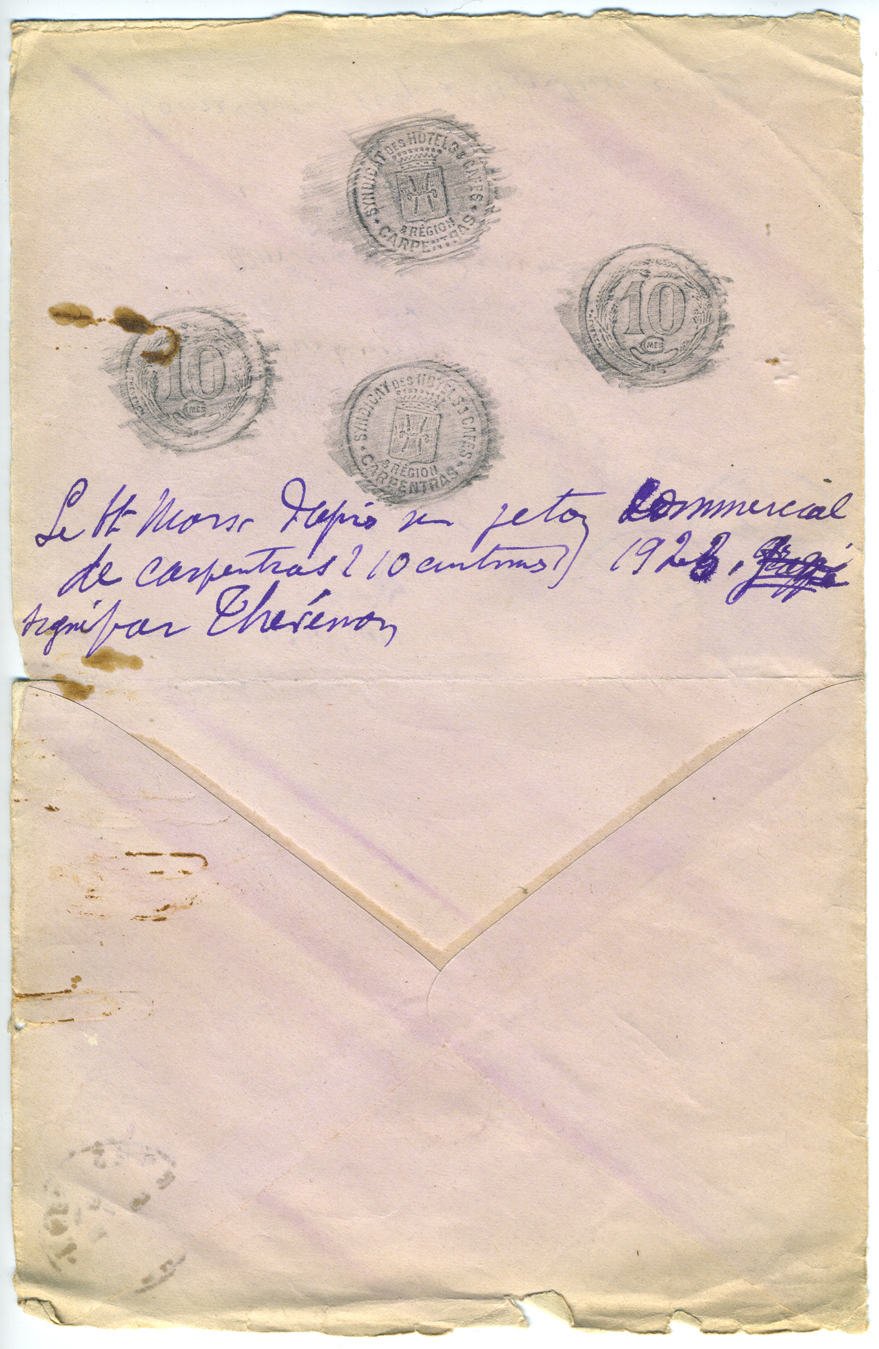 SYNDICAT DES HOTELS & CAFES
& RÉGION
CARPENTRAS
10
CMES
10
CMES
SYNDICAT DES HOTELS & CAFES
& RÉGION
CARPENTRAS
Le St Mors d'après un jeton commercial
de carpentras (10 centimes) 1922.
signé par Thévenon